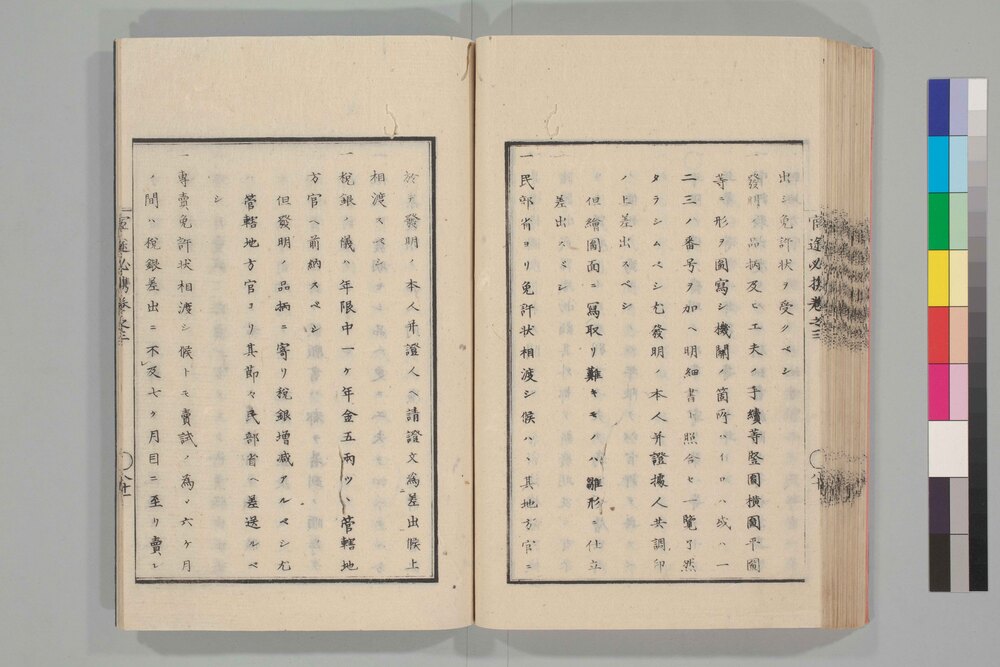 出シ免許状ヲ受クベシ
發明ノ品柄及ビ工夫ノ手續等竪圖横圖平圖
等ノ形ヲ圖寫シ機關ノ箇所ハイロハ或ハ一
二三ノ番号ヲ加ヘ明細書ト照合セ一覧了然
タラシムベシ尤發明ノ本人并證據人共調印
ノ上差出スベシ
但繪圖面ニ冩取リ難キモノハ雛形ヲ仕立
差出スベシ
一民部省ヨリ免許状相渡シ候ハヽ其地方官ニ
官途必携巻之三
於テ發明ノ本人并證人ヘ請證文為差出候上
相渡スベシ
一税銀ノ儀ハ年限中一ケ年金五兩ツヽ管轄地
方官ヘ前納スベシ
但發明ノ品柄ニ寄リ税銀増減アルベシ尤
管轄地方官ヨリ其節々民部省ヘ差送ルベ
シ
一專賣免許状相渡シ候トモ賣試ノ為メ六ケ月
ノ間ハ税銀差出ニ不及七ケ月目ニ至リ賣レ
官途必携巻之三